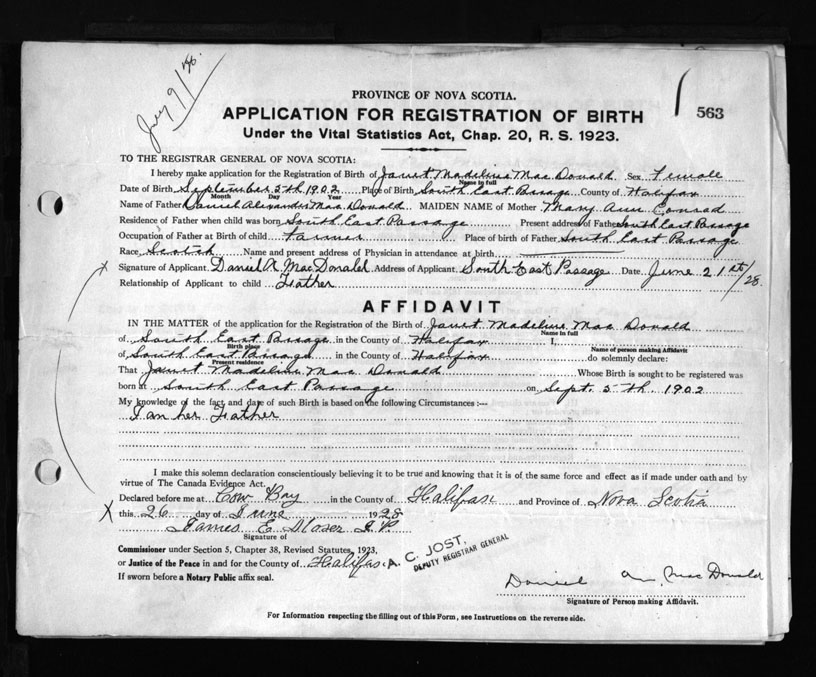 July 9/28.
PROVINCE OF NOVA SCOTIA.
563
APPLICATION FOR REGISTRATION OF BIRTH
Under the Vital Statistics Act, Chap. 20, R. S. 1923.
TO THE REGISTRAR GENERAL OF NOVA SCOTIA:
I hereby make application for the Registration of Birth of Janet Madeline Mac Donald Sex Female
Name in full
Date of Birth September 5th 1902 Place of Birth South East Passage County of Halifax
Month Day Year
Name of Father Daniel Alexander Mac Donald MAIDEN NAME of Mother Mary Ann Conrad
Residence of Father when child was born South East Passage Present address of Father South East Passage
Occupation of Father at Birth of child Farmer Place of birth of Father South East Passage
Race Scotch Name and present address of Physician in attendance at birth
x Signature of Applicant Daniel A MacDonald Address of Applicant South East Passage Date June 21st/28.
Relationship of Applicant to child Father
AFFIDAVIT
IN THE MATTER of the application for the Registration of the Birth of Janet Madeline Mac Donald
Name in full
of South East Passage in the County of Halifax I,
Birth place Name of person making Affidavit
of South East Passage in the County of Halifax do solemnly declare:
Present residence
That Janet Madeline Mac Donald Whose Birth is sought to be registered was
born at South East Passage on Sept. 5th. 1902
My knowledge of the fact, and date of such Birth is based on the following Circumstances :—
I am her Father
I make this solemn declaration conscientiously believing it to be true and knowing that it is of the same force and effect as if made under oath and by
virtue of The Canada Evidence Act.
Declared before me at Cow Bay in the County of Halifax and Province of Nova Scotia
x this 26 day of June 1928
James E Moser J.P.
Signature of
Commissioner under Section 5, Chapter 38, Revised Statutes, 1923,
or Justice of the Peace in and for the County of Halifax
C. JOST,
DEPUTY REGISTRAR GENERAL
If sworn before a Notary Public affix seal.
Daniel A. MacDonald
Signature of Person making Affidavit.
For Information respecting the filling out of this Form, see Instructions on the reverse side.